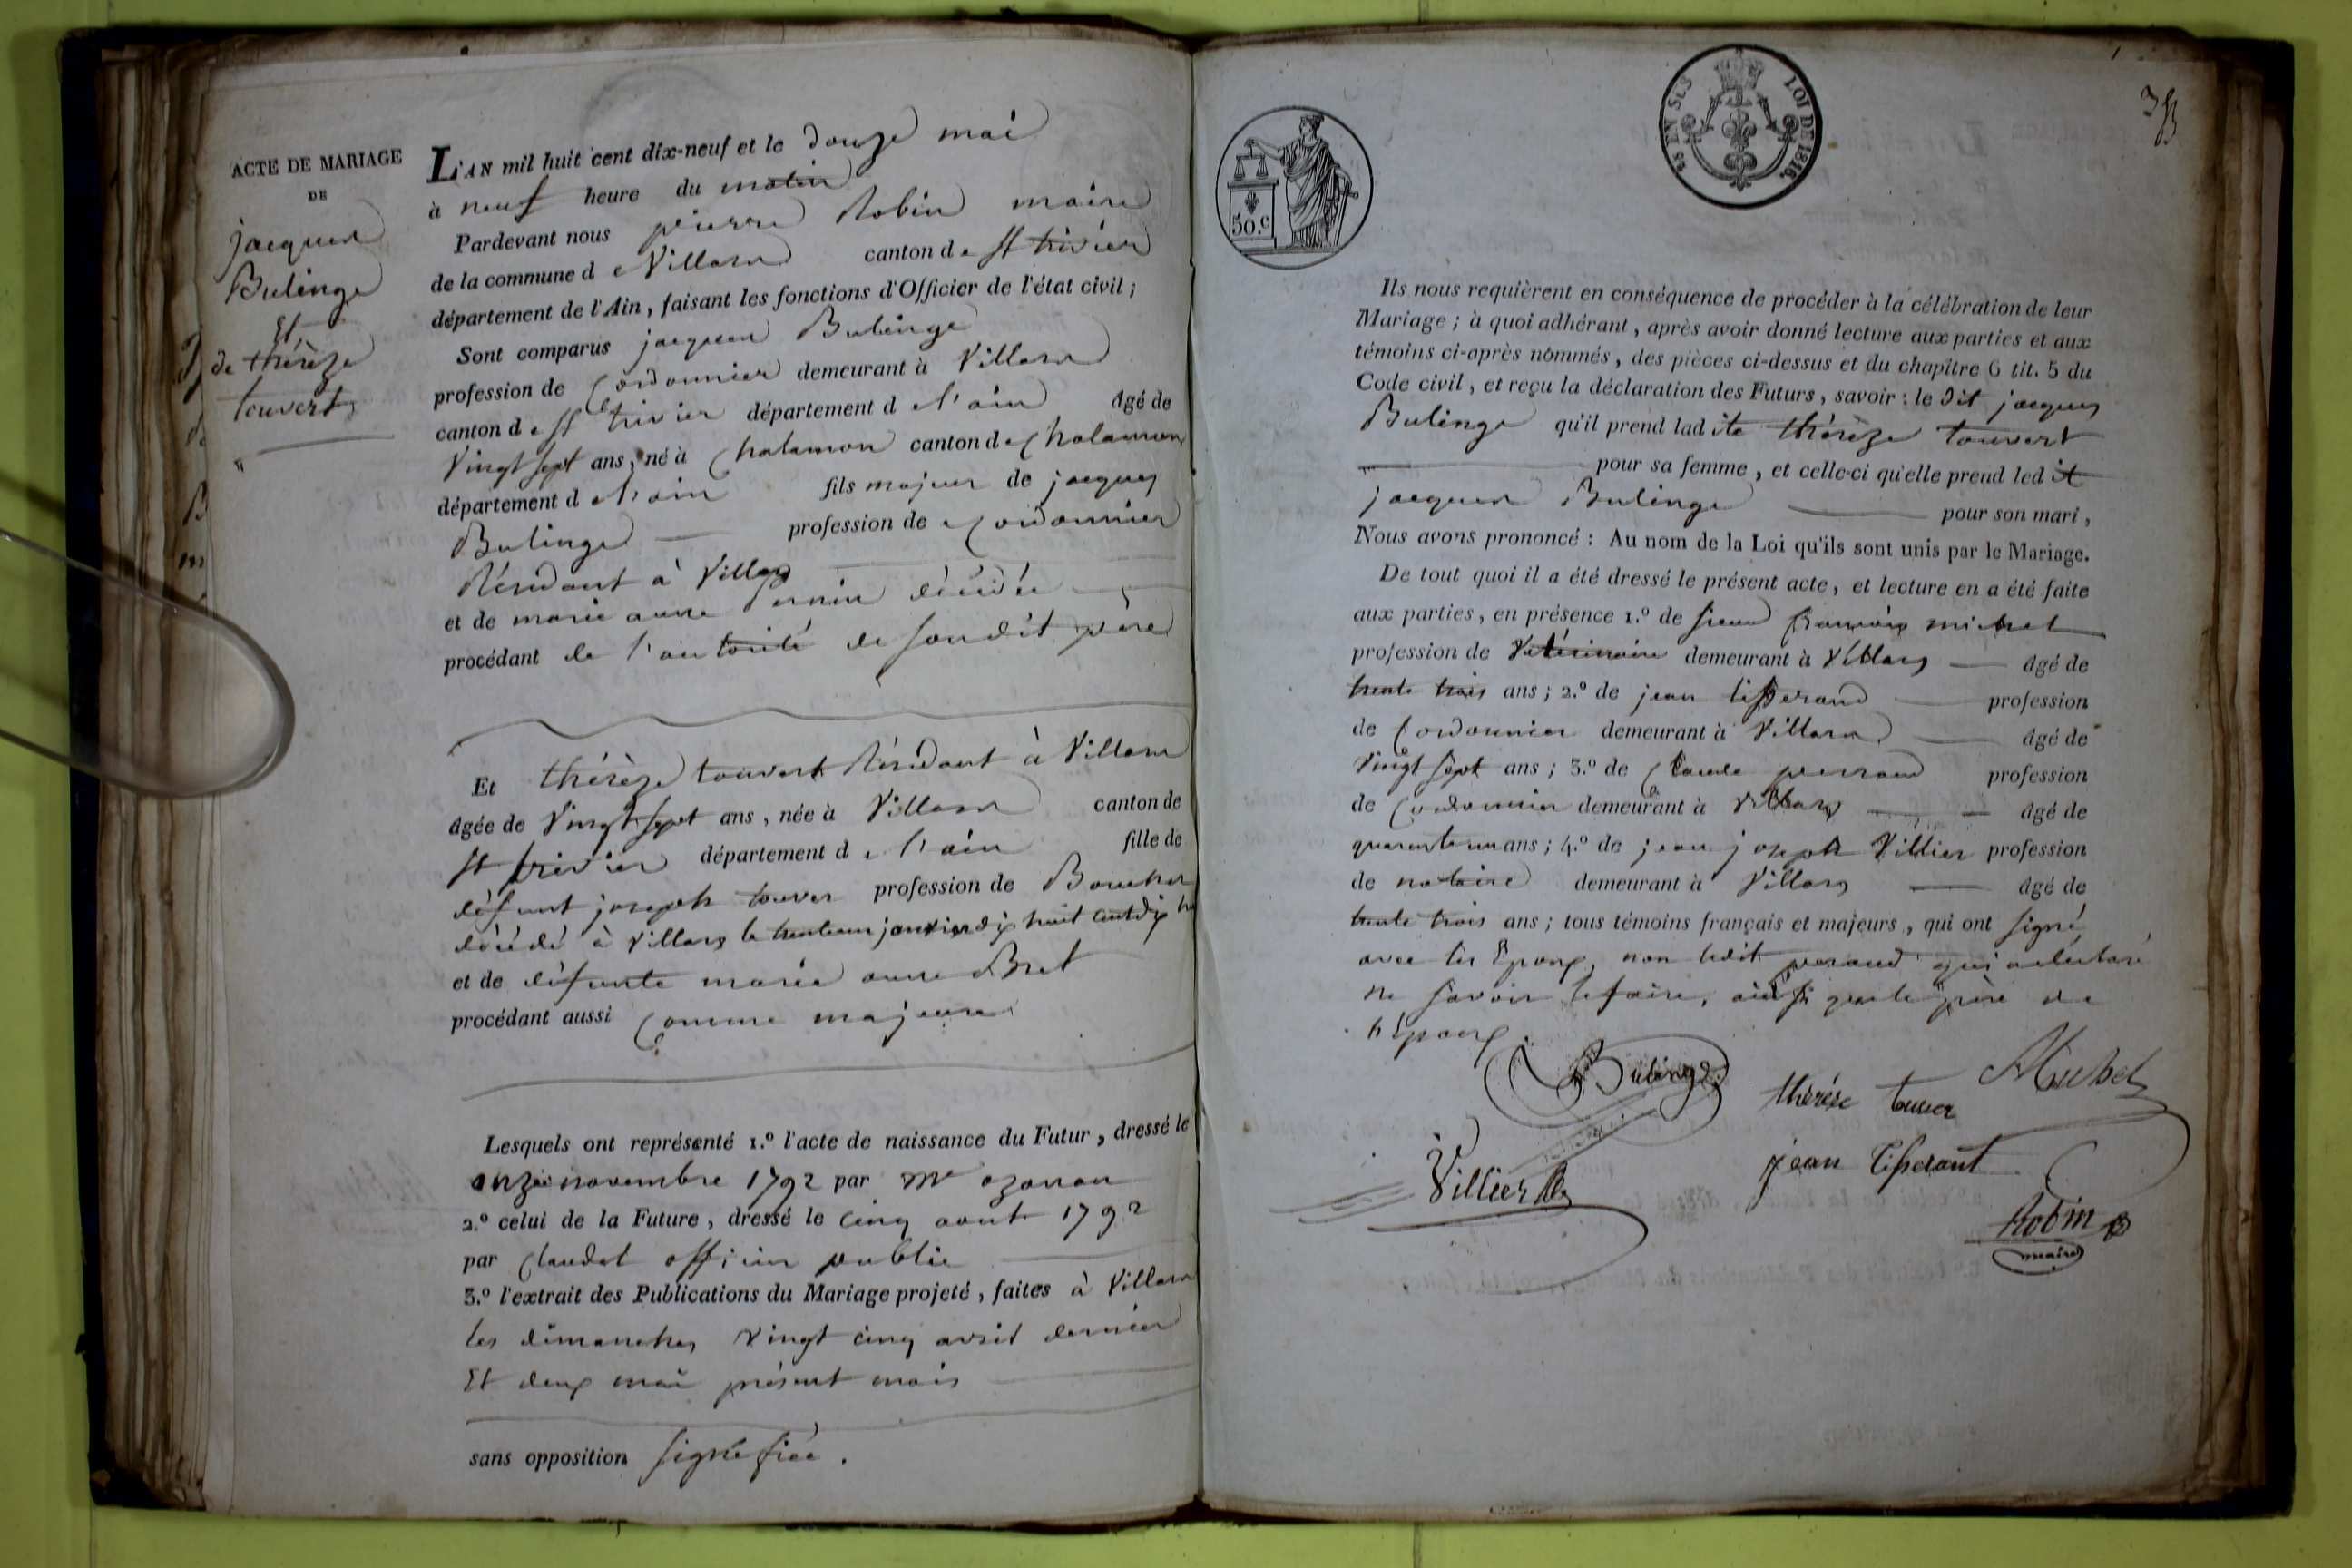 ACTE DE MARIAGE
DE
jacques
Bulinge
Et
de thérèze
touvert
L'AN mil huit cent dix-neuf et le douze mai
à neuf heure du matin
Pardevant nous pierre Robin maire
de la commune d e Villars canton d e st trivier
département de l'Ain, faisant les fonctions d'Officier de l'état civil;
Sont comparus jacques Bulinge
profession de Cordonnier demeurant à Villars
canton d e st trivier département d e l'ain âgé de
Vingt sept ans, né à Chalamon canton d e Chalamon
département d e l'ain fils majeur de jacques
Bulinge profession de Cordonnier
Résidant à Villars
et de marie anne décédée
procédant de l'autorité de son dit père
Et thérèze touvert Résidant à Villars
âgée de Vingt sept ans, née à Villars canton de
st trivier département d e l'ain fille de
défunt joseph touver profession de Boucher
décédé à Villars le trente un janvier dix huit cent dix
et de défunte marie anne Bret
procédant aussi Comme majeure
Lesquels ont représenté 1.º l'acte de naissance du Futur, dressé le
onze novembre 1792 par Mr ozanon
2.º celui de la Future, dressé le cinq aout 1792
par Claudet officier public
3.º l'extrait des Publications du Mariage projeté, faites à Villars
les dimanches Vingt cinq avril dernier
Et deux mai présent mois
sans opposition signifiée.
38
LOI DE 1816.
50.C
Ils nous requièrent en conséquence de procéder à la célébration de leur
Mariage; à quoi adhérant, après avoir donné lecture aux parties et aux
témoins ci-après nommés, des pièces ci-dessus et du chapitre 6 tit. 5 du
Code civil, et reçu la déclaration des Futurs, savoir: le dit jacques
Bulinge qu'il prend lad ite thérèze touvert
pour sa femme, et celle-ci qu'elle prend led it
jacques Bulinge pour son mari,
Nous avons prononcé: Au nom de la Loi qu'ils sont unis par le Mariage.
De tout quoi il a été dressé le présent acte, et lecture en a été faite
aux parties, en présence 1.º de sieur françois michel
profession de Vétérinaire demeurant à Villars âgé de
trente trois ans; 2.º de jean tisserand profession
de Cordonnier demeurant à Villars âgé de
Vingt sept ans; 3.º de Claude perraud profession
de Cordonnier demeurant à Villars âgé de
quarante un ans; 4.º de jean joseph Villier profession
de notaire demeurant à Villars âgé de
trente trois ans; tous témoins français et majeurs, qui ont signé
avec les Epoux, non ledit peraud qui a déclaré
ne savoir le faire, ainsi que le père de
l'Epoux.
Bulinge
thérése touver
Michel
Villier
jean tisserant
Robin
maire